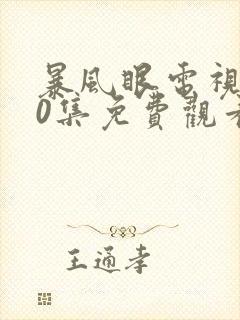 暴風眼電視
0集免費觀看
王通孝